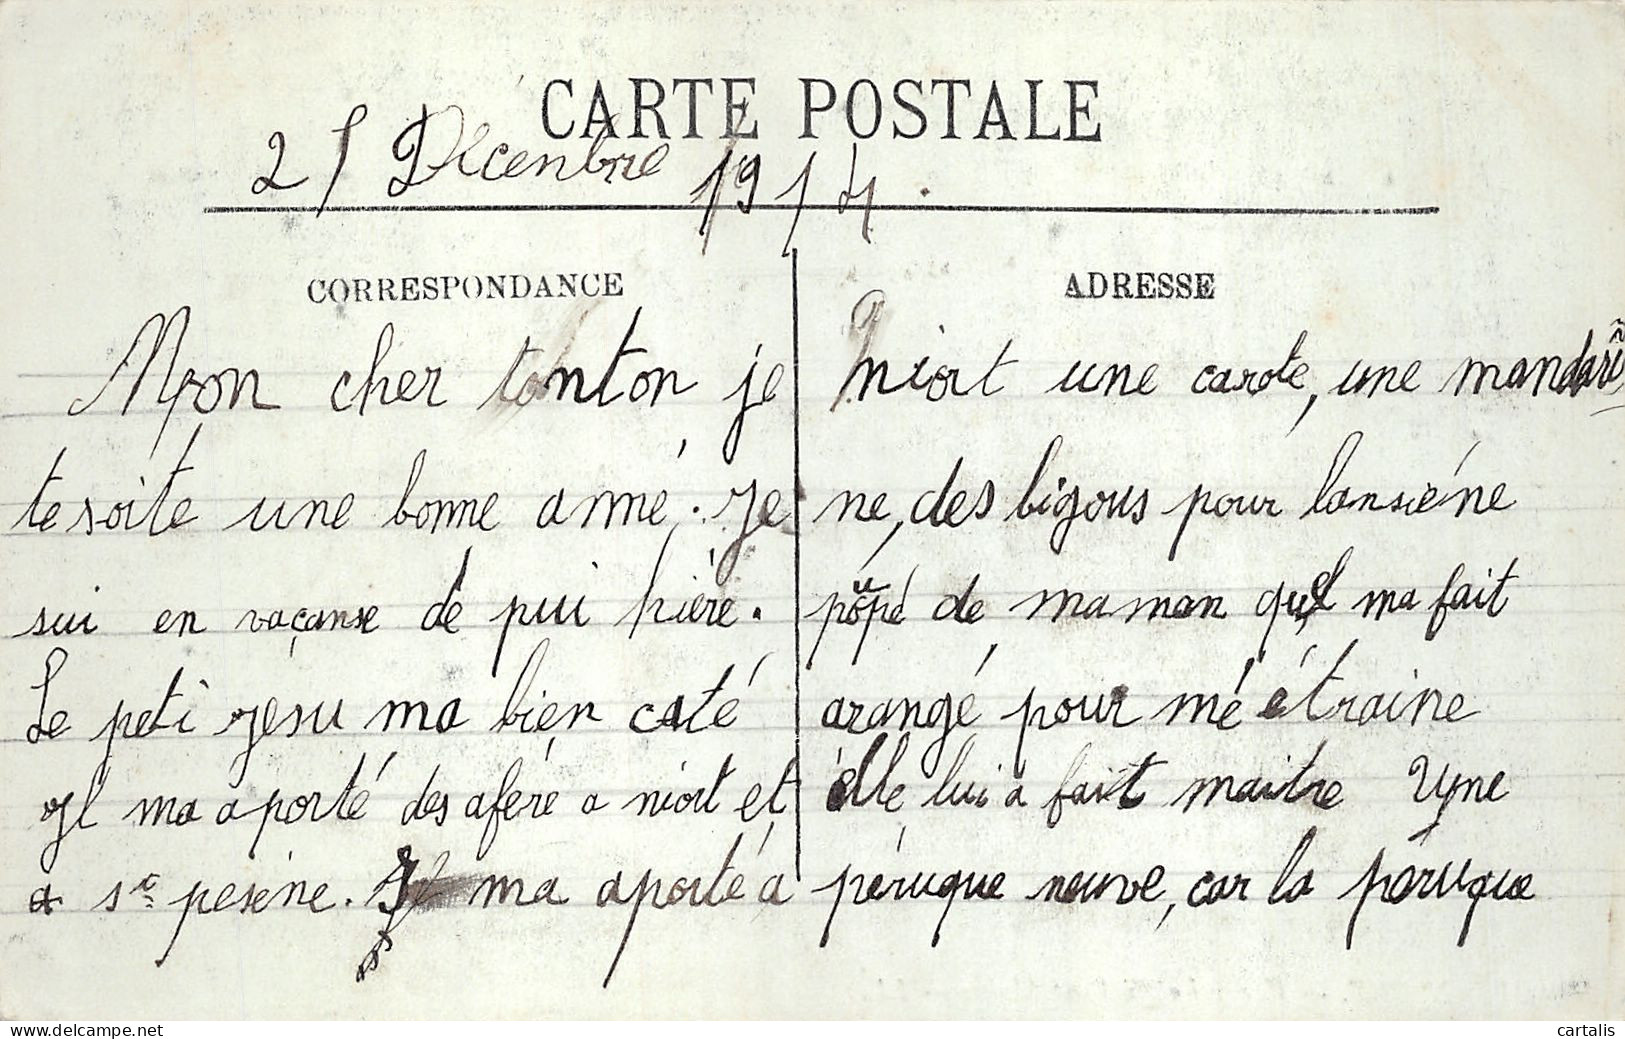 CARTE POSTALE
25 Décenbre 1914.
CORRESPONDANCE
Mon cher tonton je
te soite une bonne anné. je
sui en vaçanse dé pui hière.
Le peti jesu ma bien caté
il ma aporté des afère a niort et
a Ste pesène. Il ma aporté a
ADRESSE
niort une carote, une mandari
ne, des bigous pour lansiéne
poupé de maman quel ma fait
arangé pour mé étraine
elle lui a fait maitre une
péruque neuve, car la péruque
cartalis
www.delcampe.net